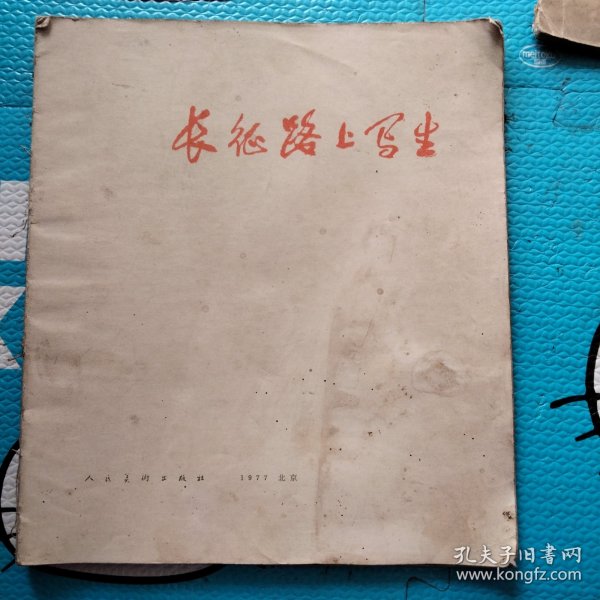 长征路上写生
人民美術出版社 1977 北京
孔夫子旧書网
www.kongfz.com